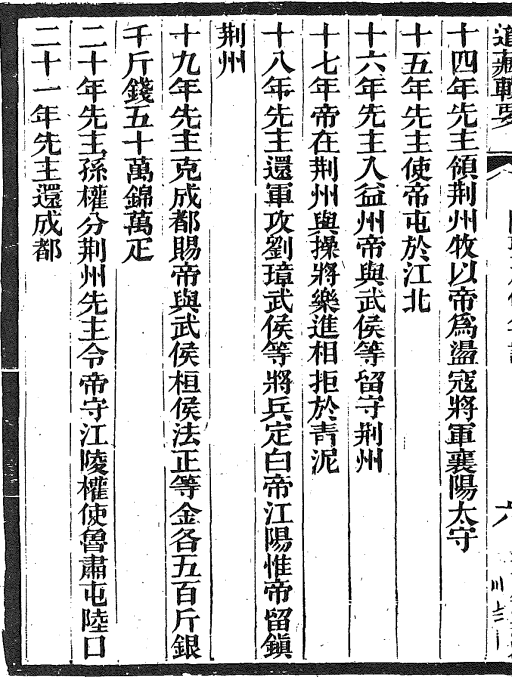 道藏輯要
十四年先主領荆州牧以帝爲盪寇將軍襄陽太守
十五年先主使帝屯於江北
十六年先主入益州帝與武侯等留守荆州
十七年帝在荆州與操將樂進相拒於青泥
十八年先主還軍攻劉璋武侯等將兵定白帝江陽惟帝留鎭
荆州
十九年先主克成都賜帝與武侯桓侯法正等金各五百斤銀
千斤錢五十萬錦萬疋
二十年先主孫權分荆州先主令帝守江陵權使魯肅屯陸口
二十一年先主還成都